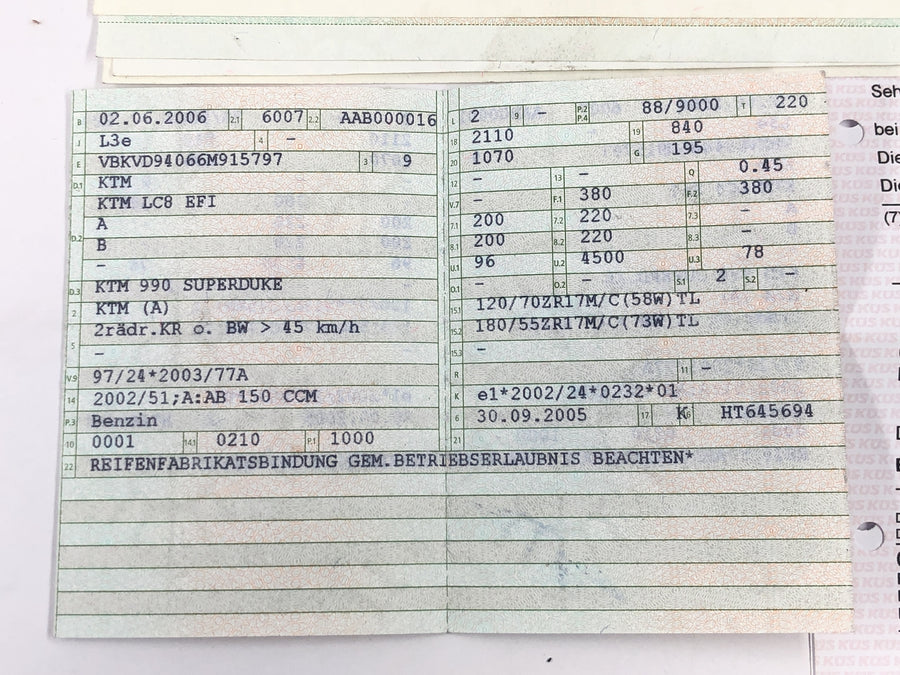 B 02.06.2006 2.1 6007 2.2 AAB000016
J L3e 4 –
E VBKVD94066M915797 3 9
D.1 KTM
KTM LC8 EFI
D.2 A
B
–
D.3 KTM 990 SUPERDUKE
2 KTM (A)
5 2rädr.KR o. BW > 45 km/h
–
V.9 97/24*2003/77A
14 2002/51;A:AB 150 CCM
P.3 Benzin
10 0001 14.1 0210 P.1 1000
22 REIFENFABRIKATSBINDUNG GEM.BETRIEBSERLAUBNIS BEACHTEN*
L 2 9 – P.2 P.4 88/9000 T 220
18 2110 19 840
20 1070 G 195
12 – 13 – Q 0.45
V.7 – F.1 380 F.2 380
7.1 200 7.2 220 7.3 –
8.1 200 8.2 220 8.3 –
U.1 96 U.2 4500 U.3 78
O.1 – O.2 – S.1 2 S.2 –
15.1 120/70ZR17M/C(58W)TL
15.2 180/55ZR17M/C(73W)TL
15.3 –
R 11 –
K e1*2002/24*0232*01
6 30.09.2005 17 K 16 HT645694
21
Seh
bei
Die
Die
(7
KÜS KÜS